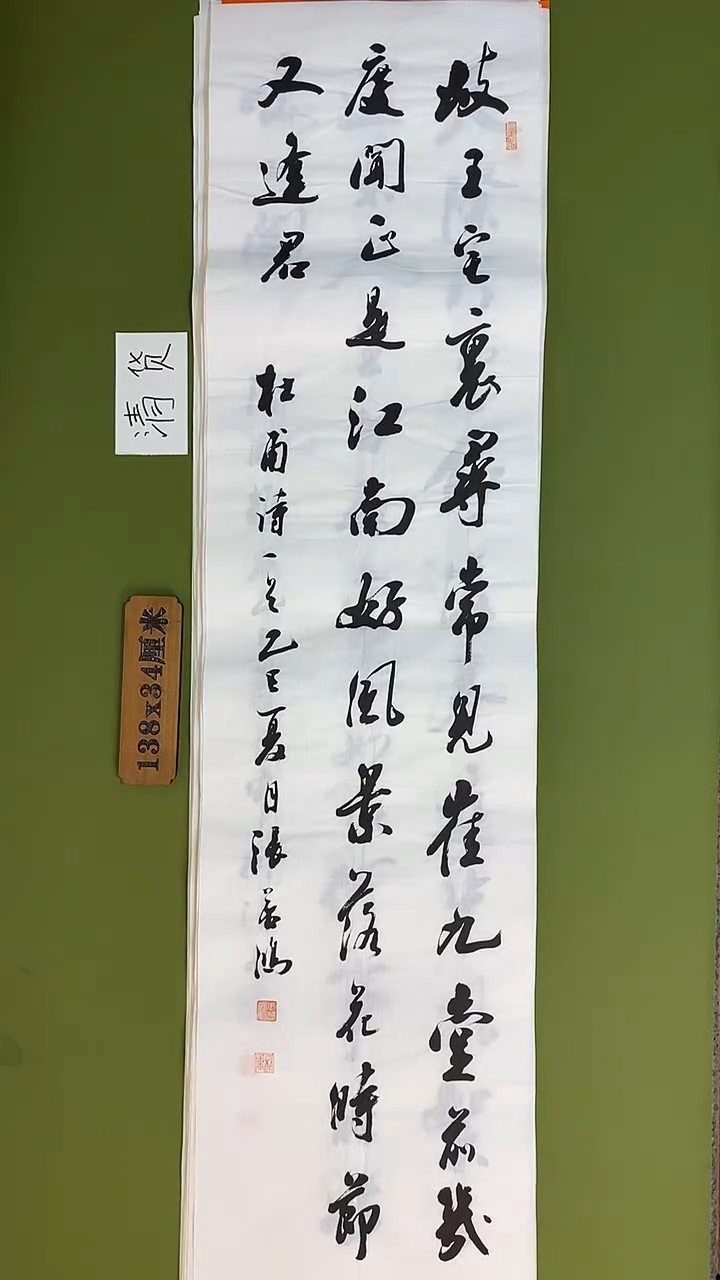 岐王宅裏尋常見崔九堂前幾
度聞正是江南好風景落花時節
又逢君
杜甫诗一首乙巳夏月張善鴻
清货
138x34厘米